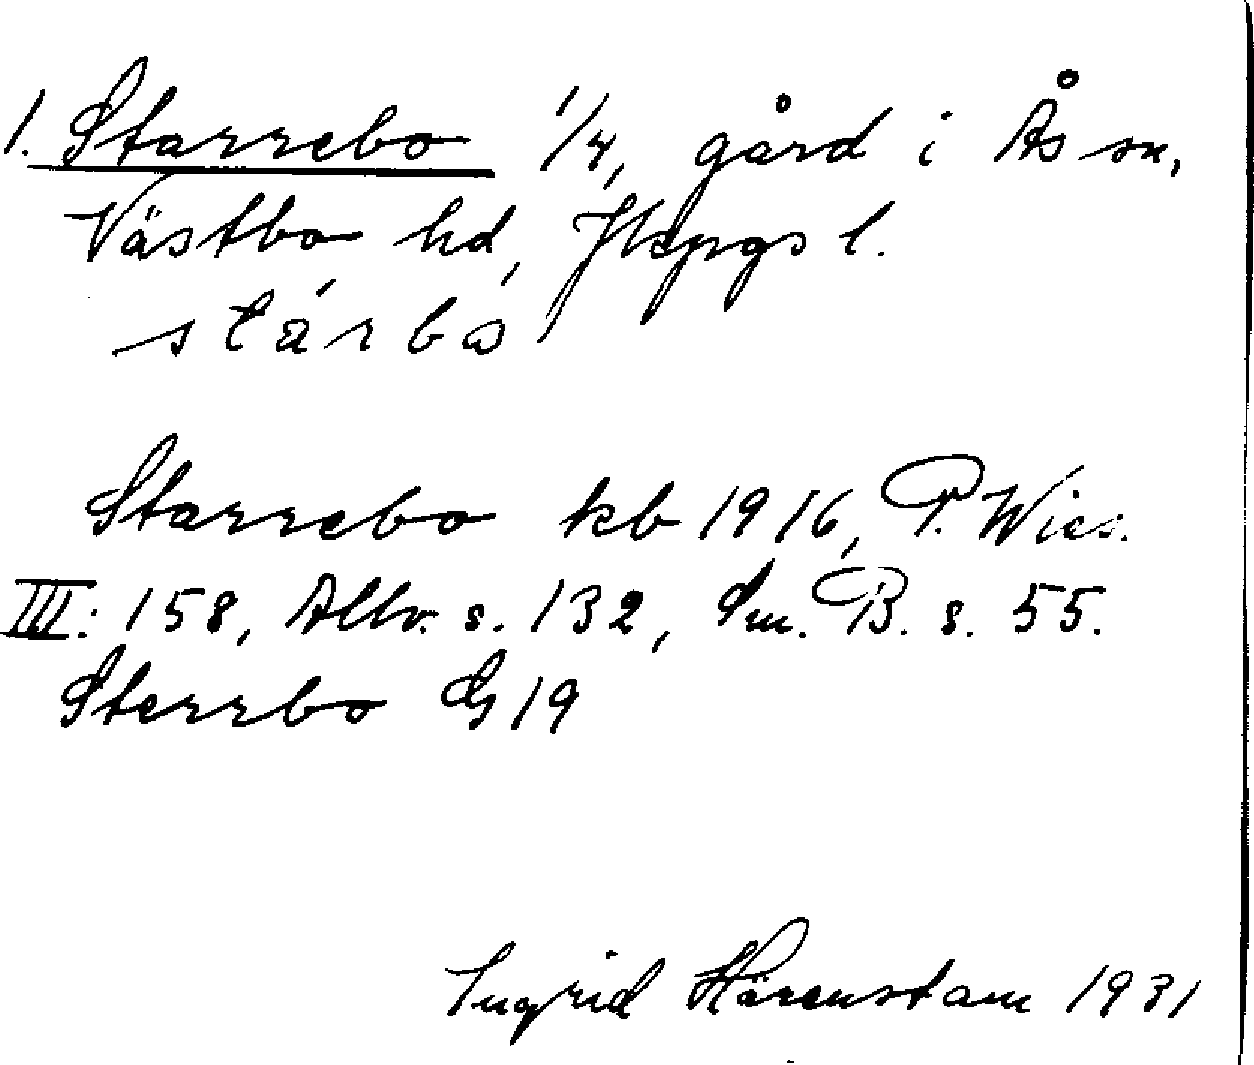 1. Starrebo 1/4, gård i Ås sn,
Västbo hd, Jkpgs l.
stárbò
Starrebo kb 1916, P. Wies.
III: 158, Allv. s. 132, Sm. B. s. 55.
Sterrbo G 19
Ingrid Härenstam 1931